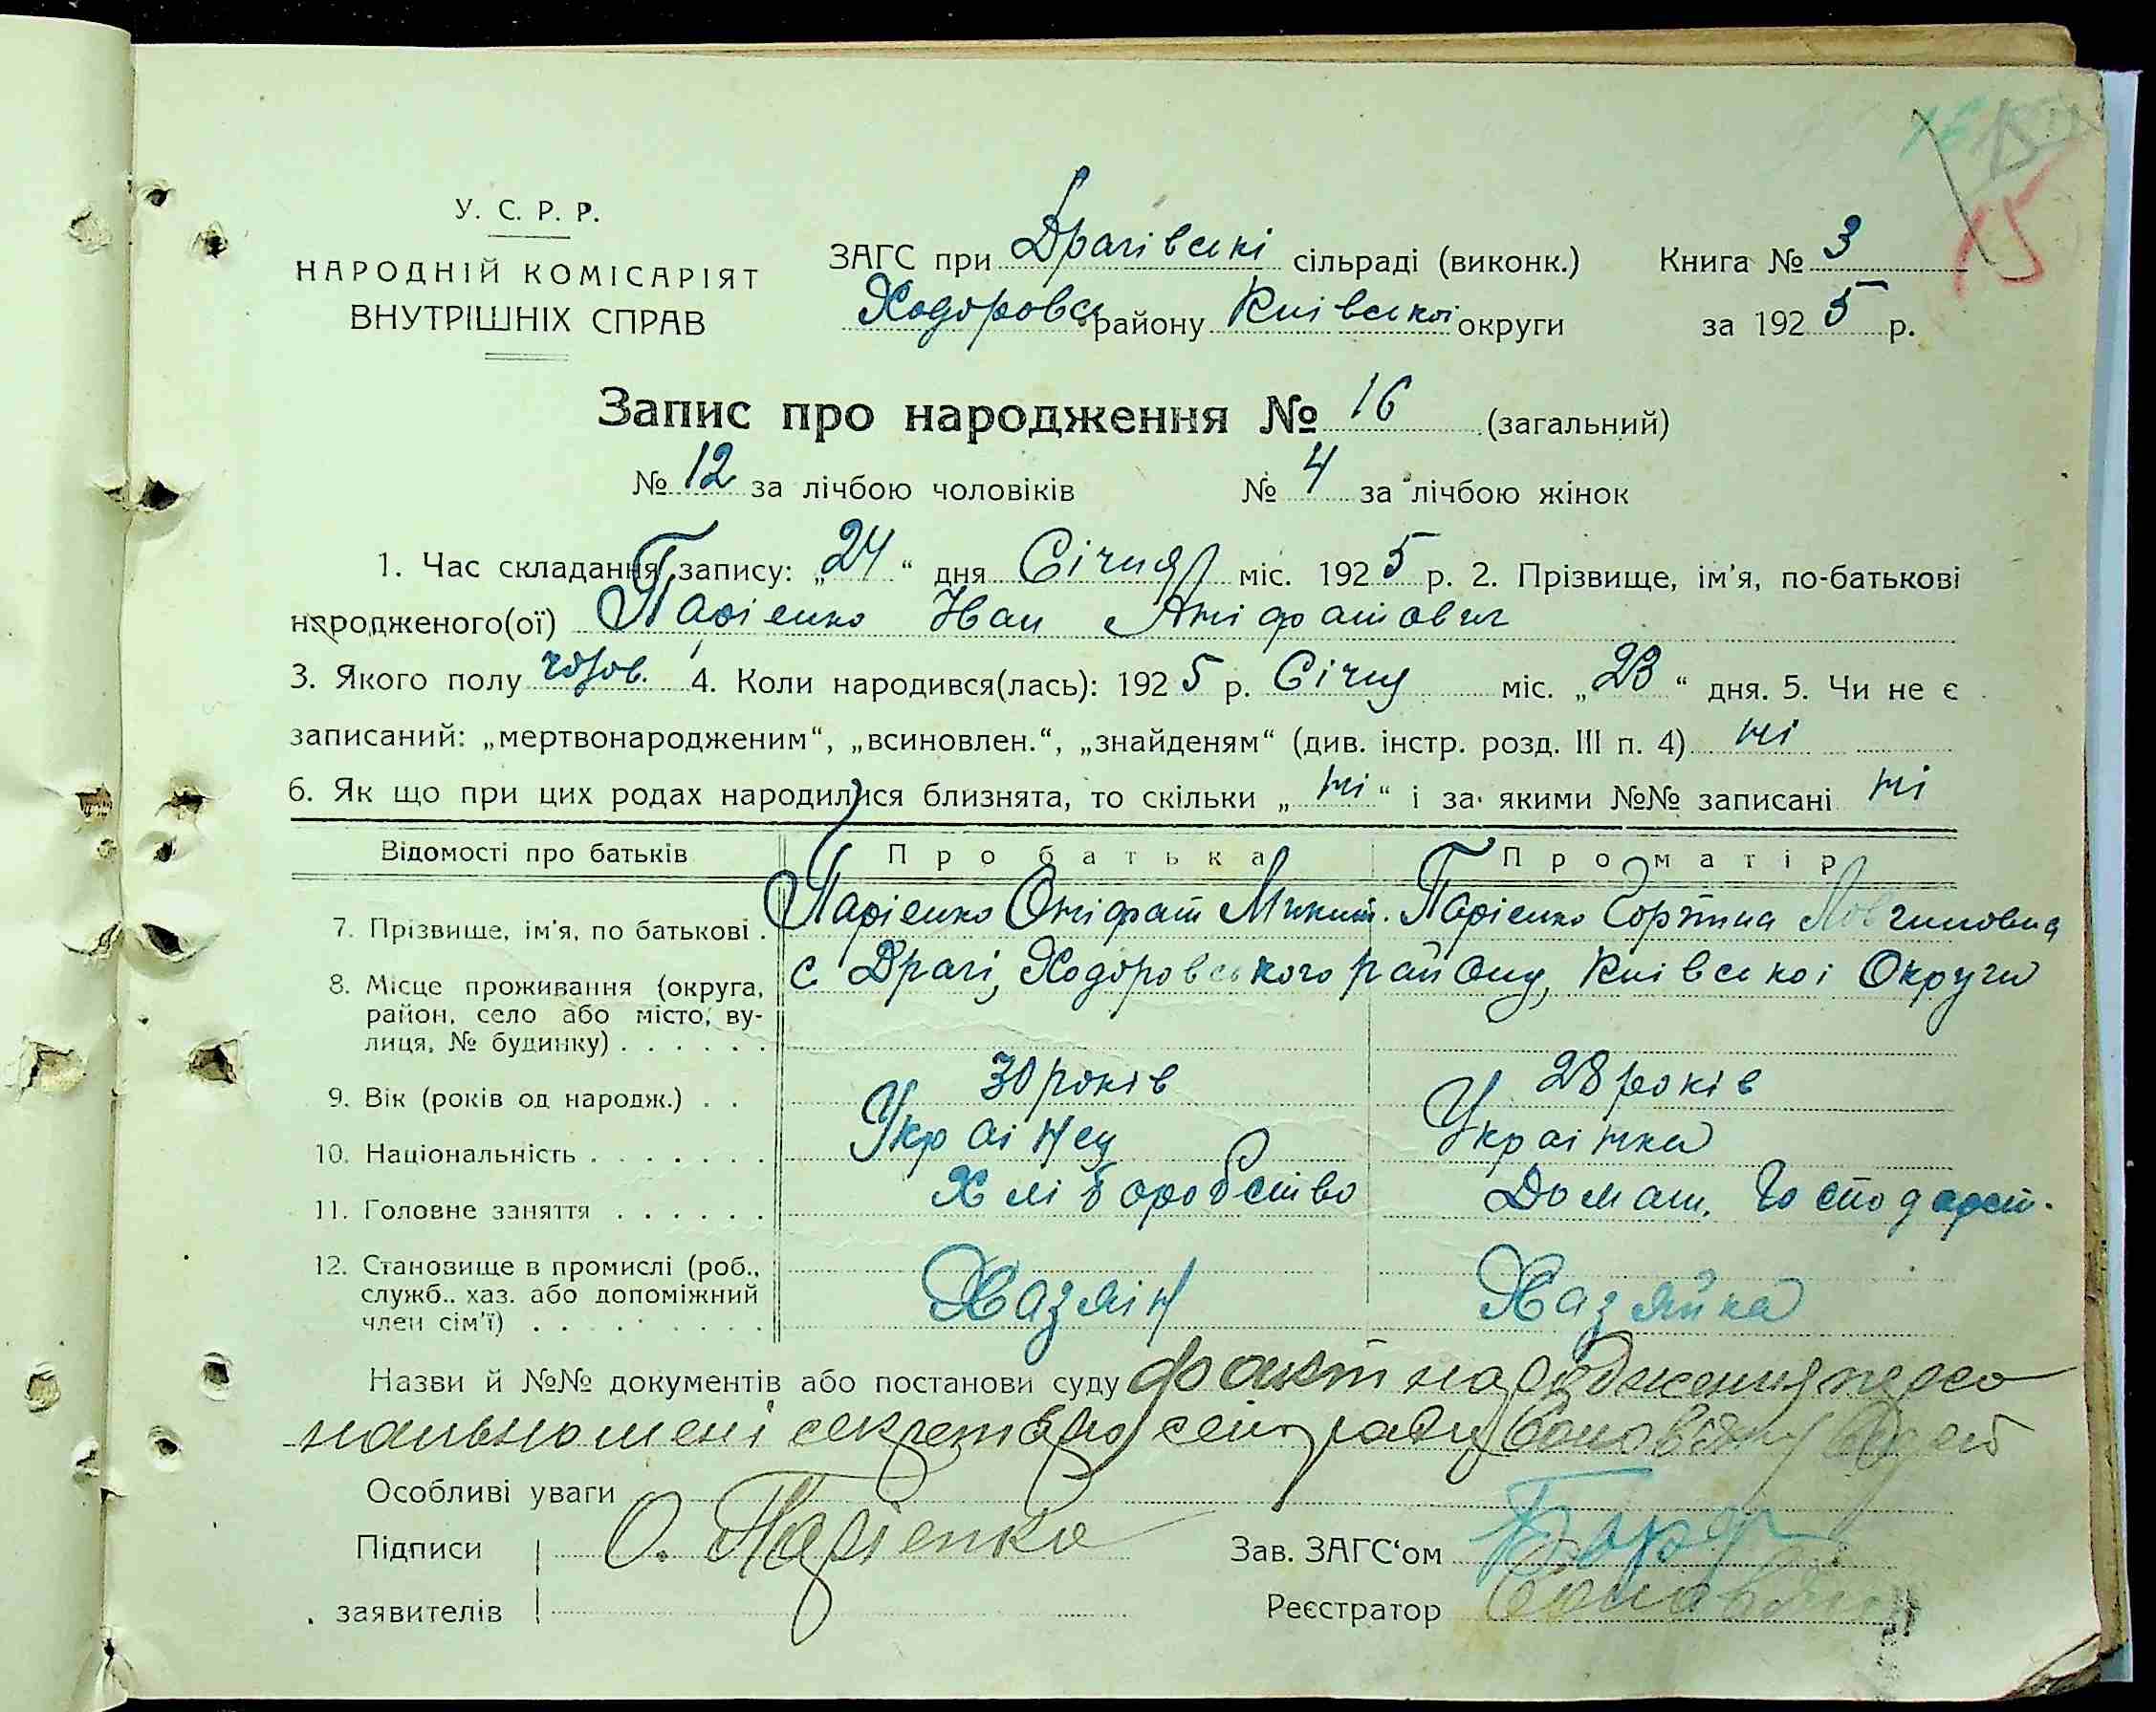 15
У. С. Р. Р.
НАРОДНІЙ КОМІСАРІЯТ
ВНУТРІШНІХ СПРАВ
ЗАГС при Драгівські сільраді (виконк.) Книга № 3
Ходоровс району Київської округи за 1925 р.
Запис про народження № 16 (загальний)
№ 12 за лічбою чоловіків № 4 за лічбою жінок
1. Час складання запису: „24“ дня Січня міс. 1925 р. 2. Прізвище, ім'я, по-батькові
народженого(ої) Парієнко Иван Аніфатович
3. Якого полу чолов. 4. Коли народився(лась): 1925 р. Січня міс. „23“ дня. 5. Чи не є
записаний: „мертвонародженим“, „всиновлен.“, „знайденям“ (див. інстр. розд. III п. 4) ні
6. Як що при цих родах народилися близнята, то скільки „ні“ і за якими №№ записані ні
Відомості про батьків Про батька Про матір
7. Прізвище, ім'я, по батькові . Парієнко Оніфат Микит. Парієнко
8. Місце проживання (округа, с Драгі, Ходоровського району, Київської Округи
район, село або місто, ву-
лиця, № будинку) . . . . . .
9. Вік (років од народж.) . . 30 років 28 років
10. Національність . . . . . . . Украінец Украінка
11. Головне заняття . . . . . . Хліборобство Домаш. Господарст.
12. Становище в промислі (роб.,
служб., хаз. або допоміжний Хазяін Хазяйка
член сім'ї) . . . . . . . . .
Назви й №№ документів або постанови суду факт народження персо
нально мені секретарю сельради
Особливі уваги
Підписи О. Парієнко Зав. ЗАГС‘ом
заявителів Реєстратор